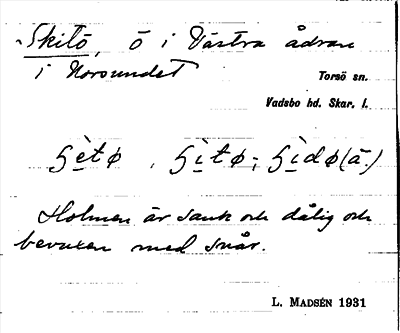 Skitö, ö i Västra ådran
i Norsundet
Torsö sn.
Vadsbo hd. Skar. l.
ʃètø, ʃìtø; ʃìdø (ä.)
Holmen är sank och dålig och
bevuxen med snår.
L. MADSÉN 1931